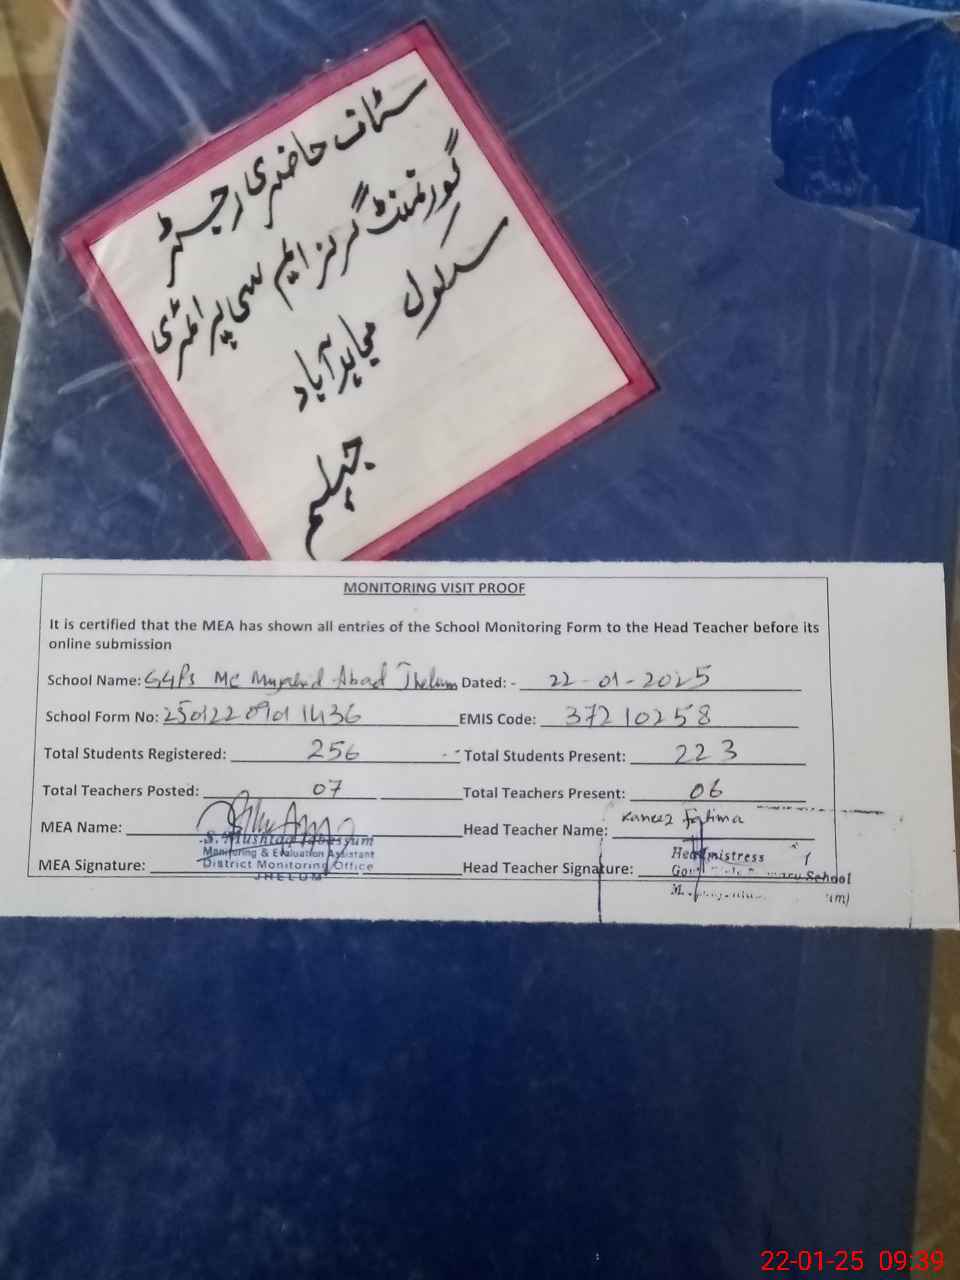 سٹاف حاضری رجسٹر
گورنمنٹ گرلز ایم سی پرائمری
سکول مجاہد آباد
جہلم
MONITORING VISIT PROOF
It is certified that the MEA has shown all entries of the School Monitoring Form to the Head Teacher before its
online submission
School Name: GGPS MC Mujahid Abad Jhelum Dated: - 22-01-2025
School Form No: 250122 0901 1436 EMIS Code: 37210258
Total Students Registered: 256 Total Students Present: 223
Total Teachers Posted: 07 Total Teachers Present: 06
MEA Name: Head Teacher Name: Kaneez Fatima
S. Mushtaq Tabassum
Monitoring & Evaluation Assistant
District Monitoring Office
JHELUM
MEA Signature: Head Teacher Signature:
Headmistress
School
22-01-25 09:39